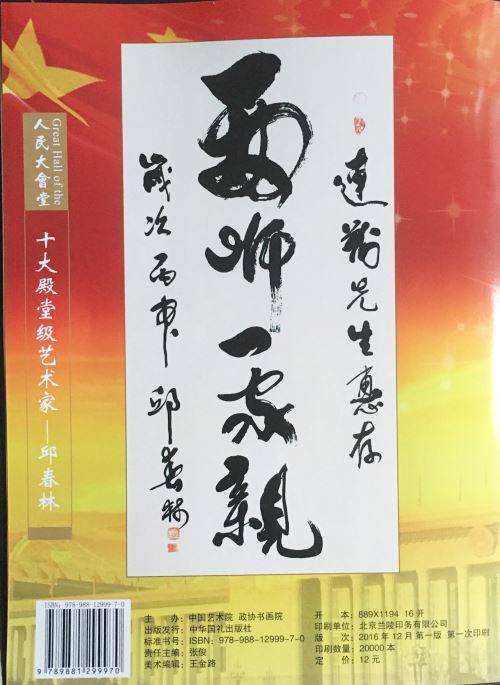 人民大會堂
Great Hall of the
十大殿堂级艺术家—邱春林
先生惠存
一家親
歲次丙申 邱春林
ISBN: 978-988-12999-7-0
9 789881 299970
主　　办：中国艺术院 政协书画院
出版发行：中华国礼出版社
标准书号：ISBN: 978-988-12999-7-0
责任主编：张俊
美术编辑：王金路
开　　本：889X1194 16开
印刷单位：北京兰陵印务有限公司
版　　次：2016年12月第一版 第一次印刷
印刷数量：20000本
定　　价：12元